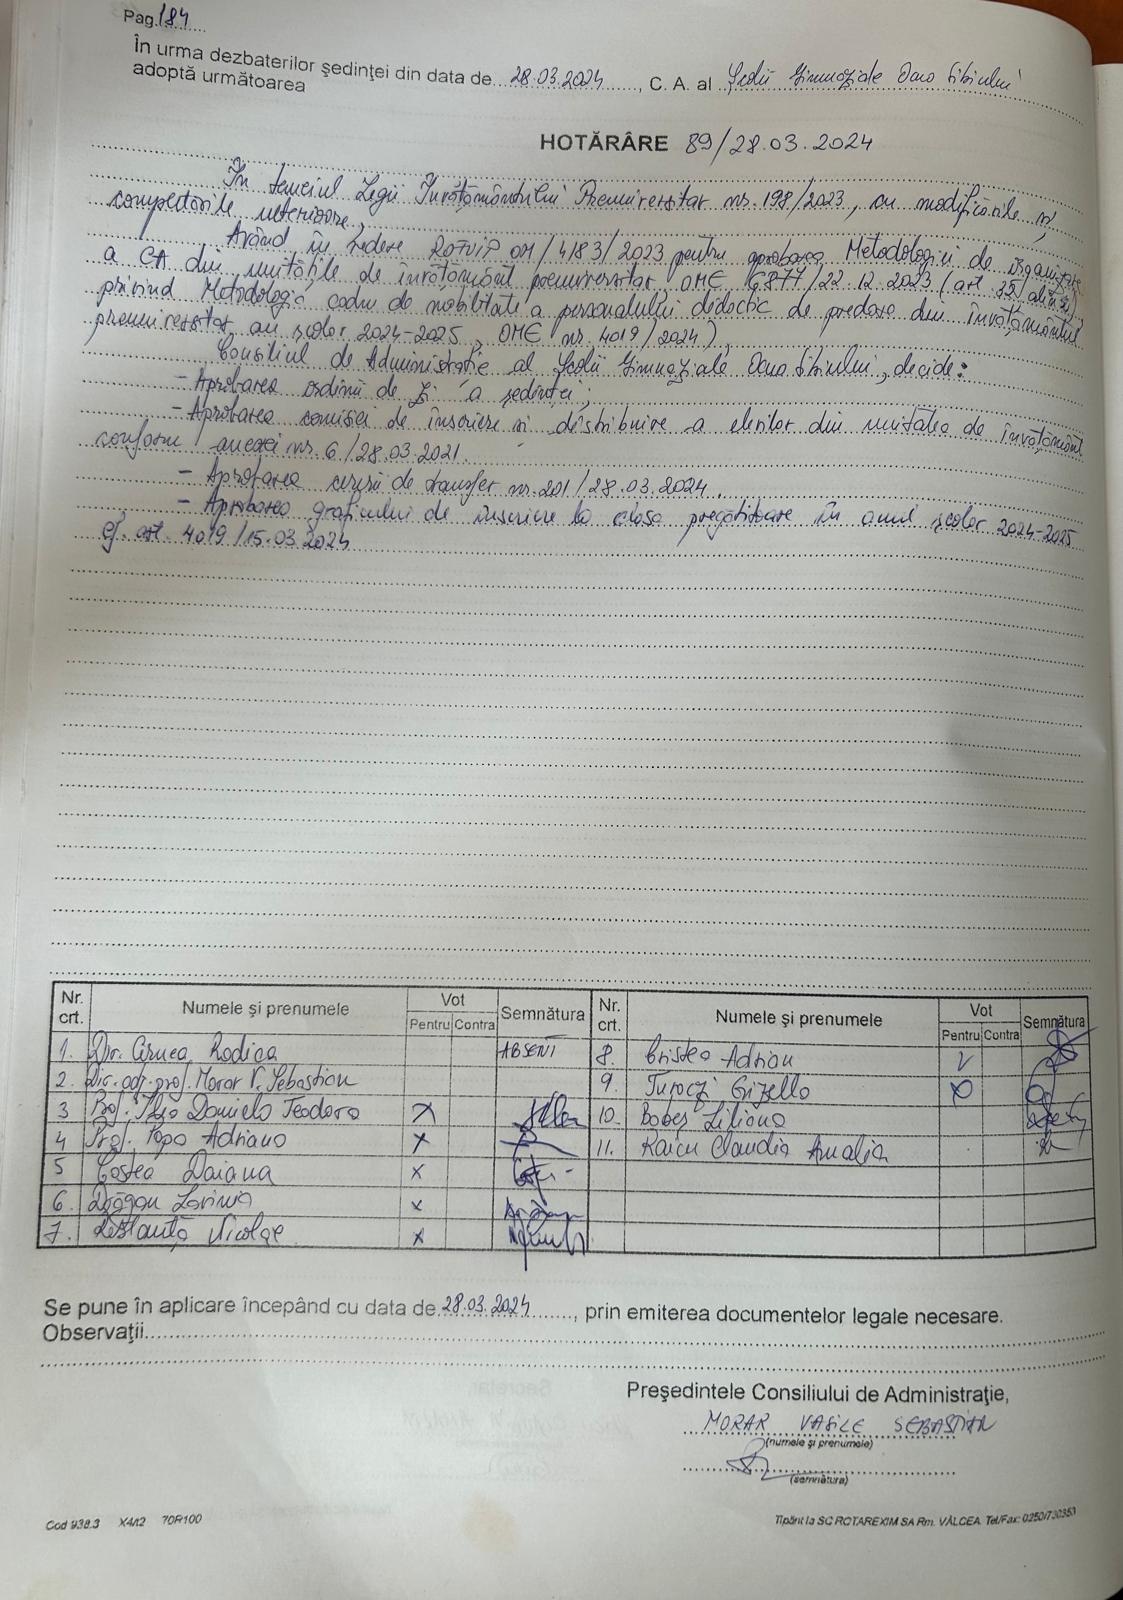 Pag. 184
În urma dezbaterilor şedinţei din data de 28.03.2024, C. A. al Şcolii Gimnaziale Ocna Sibiului
adoptă următoarea
HOTĂRÂRE 89/28.03.2024
În temeiul Legii Învățământului Preuniversitar nr. 198/2023, cu modificările și
completările ulterioare,
Având în vedere ROFUIP OM/4183/2023 pentru aprobarea Metodologiei de organizare
a CA din unitățile de învățământ preuniversitar OME 6877/22.12.2023 (art. 35 alin
privind Metodologia cadru de mobilitate a personalului didactic de predare din învățământul
preuniversitar an școlar 2024-2025, OME nr. 4019/2024),
Consiliul de Administrație al Școlii Gimnaziale Ocna Sibiului, decide:
- Aprobarea ordinii de zi a ședinței;
- Aprobarea comisiei de înscriere și distribuire a elevilor din unitatea de învățământ
conform anexei nr. 6/28.03.2021.
- Aprobarea cererii de transfer nr. 201/28.03.2024.
- Aprobarea graficului de înscriere la clasa pregătitoare în anul școlar 2024-2025
cf. art. 4019/15.03.2024
Nr. crt. Numele şi prenumele Vot Semnătura Nr. crt. Numele şi prenumele Vot Semnătura
Pentru Contra Pentru Contra
1. Dir. Rodica ABSENT 8. Cristea Adrian V
2. Dir. adj. prof. Morar V. Sebastian 9. Turoczi Gizella X
3 Prof. Daniela Teodora X 10. Bobeș Liliana
4 Prof. Popa Adriana X 11. Raicu Claudia Amalia
5 Costea Daiana X
6. Drăgan Lavinia X
7. Nicolae X
Se pune în aplicare începând cu data de 28.03.2024, prin emiterea documentelor legale necesare.
Observaţii
Preşedintele Consiliului de Administraţie,
MORAR VASILE SEBASTIAN
(numele şi prenumele)
(semnătura)
Cod 938.3 X4/t2 70R100
Tipărit la SC ROTAREXIM SA Rm. VÂLCEA Tel/Fax: 0250/730353